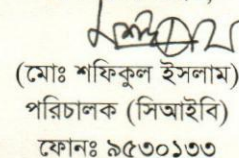 (মোঃ শফিকুল ইসলাম)
পরিচালক (সিআইবি)
ফোনঃ ৯৫৩০১৩৩